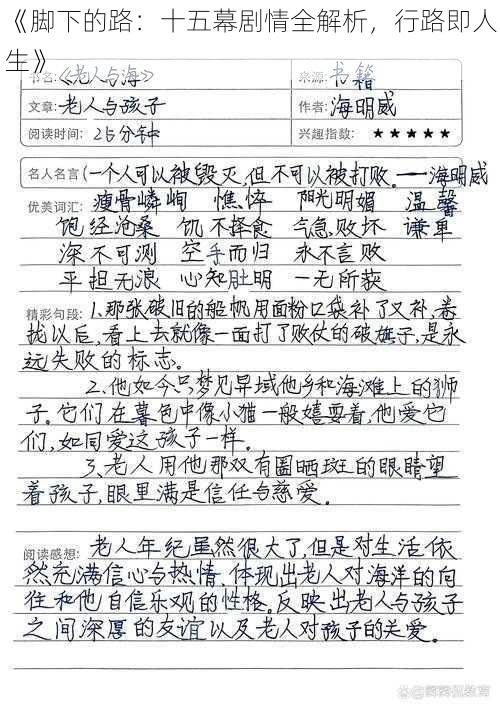 《脚下的路：十五幕剧情全解析，行路即人
生》
书名：《老人与海》 来源：书籍
文章：老人与孩子 作者：海明威
阅读时间：25分钟 兴趣指数：★★★★★
名人名言(一个人可以被毁灭,但不可以被打败。——海明威
优美词汇：瘦骨嶙峋 憔悴 阳光明媚 温馨
饱经沧桑 饥不择食 气急败坏 谦卑
深不可测 空手而归 永不言败
平担无浪 心知肚明 一无所获
精彩句段：1.那张破旧的船帆用面粉口袋补了又补,卷
拢以后,看上去就像一面打了败仗的破旗子,是永
远失败的标志。
2.他如今只梦见异域他乡和海滩上的狮
子。它们在暮色中像小猫一般嬉耍着,他爱它
们,如同爱这孩子一样。
3.老人用他那双有圈晒斑的眼睛望
着孩子,眼里满是信任与慈爱。
阅读感想：老人年纪虽然很大了,但是对生活依
然充满信心与热情.体现出老人对海洋的向
往和他自信乐观的性格。反映出老人与孩子
之间深厚的友谊以及老人对孩子的关爱。